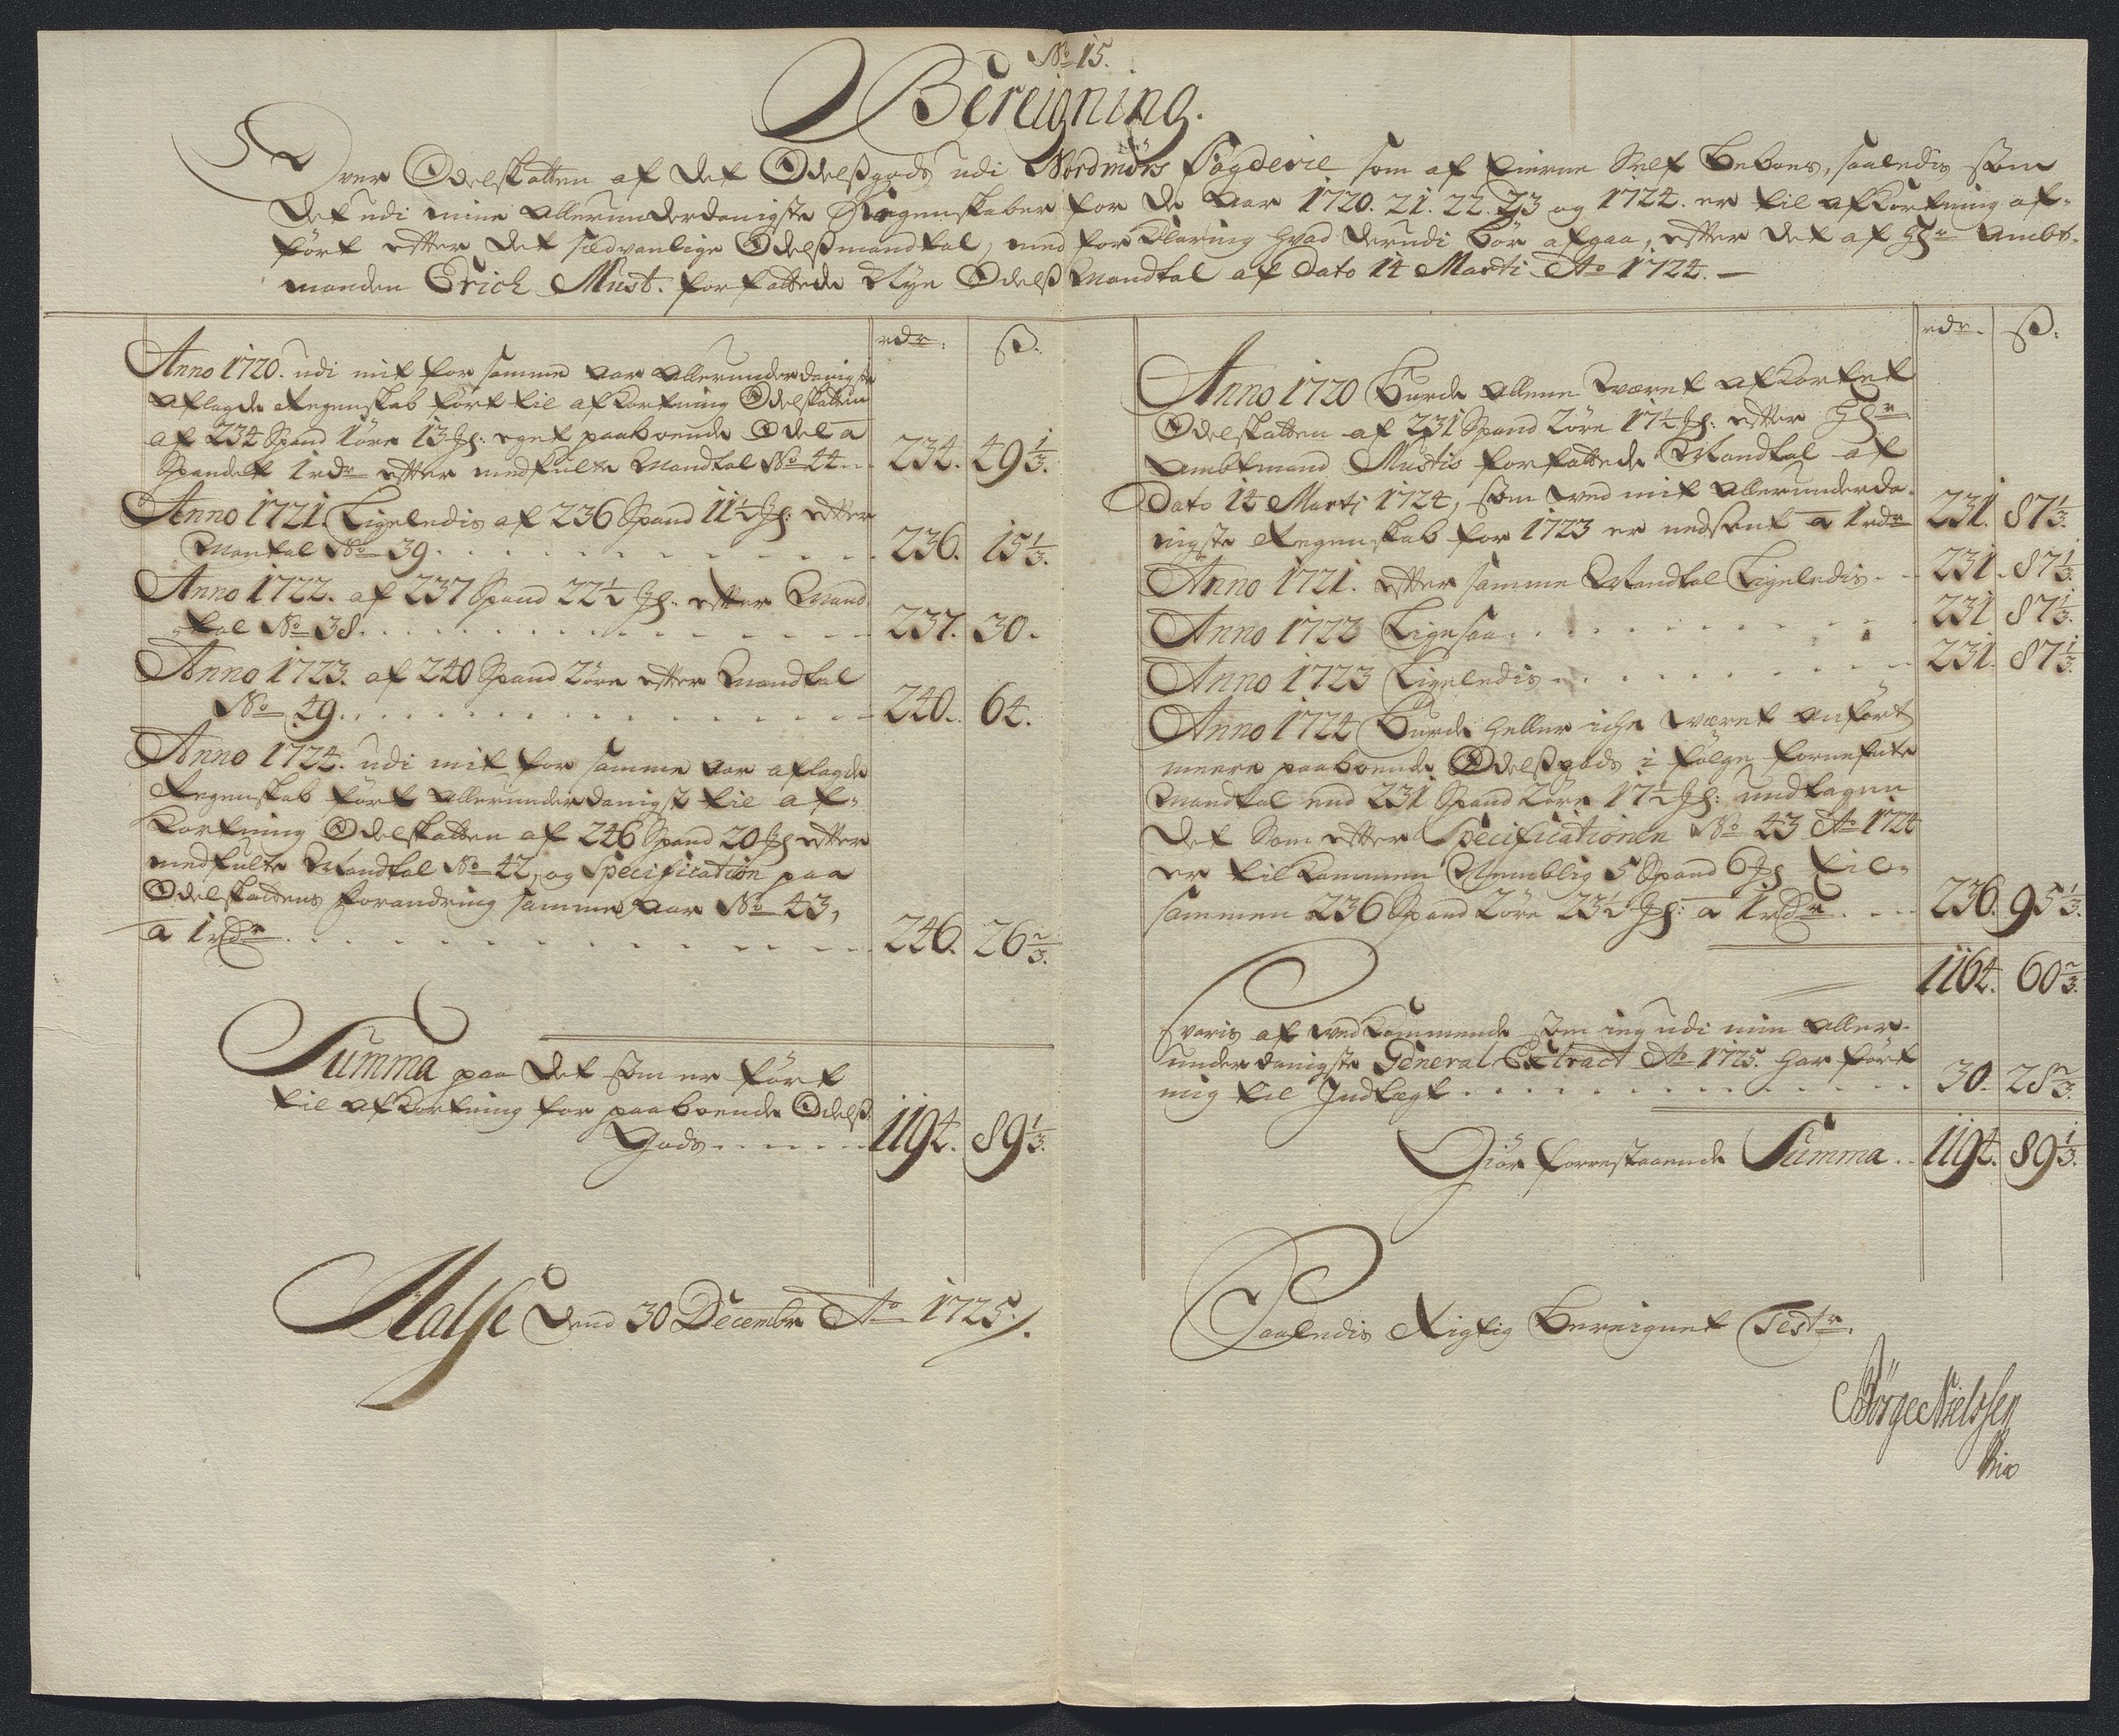 No 15.
Bereigning.
Over Odelskatten af det Odelsgods udi Nordmörs Fogderie som af Eierne Self Beboes, saaledis som
det udi mine allerunderdanigste Regenskaber for de Aar 1720. 21. 22. 23 og 1724. er til afkortning af-
fört efter det sædvanlige Odelsmandtal, med forklaring hvad derudi bör afgaa, efter det af Hr Ambt-
manden Erich Must. forfattede Nÿe Odels Mandtal af dato 14 Marti Ao 1724. —
rdr. ß.
Anno 1720. udi mit for samme aar allerunderdanigste
aflagde Regenskab fört til afkortning Odelskatten
af 234 Spand 1öre 13 Jh: eget paaboende Odel a
Spandet 1 rdr efter medfulte Mandtal No 44.. 234. 49 1/3.
Anno 1721. Ligeledis af 236 Spand 11½ Jh: efter
Mantal No 39. . . . 236. 15 1/3.
Anno 1722. af 237 Spand 22½ Jh. efter Mand
tal No 38. . . . 237. 30.
Anno 1723. af 240 Spand 2öre efter Mandtal
No 49. . . . 240. 64.
Anno 1724. udi mit for samme aar aflagde
Regenskab fört allerunderdanigst til af-
kortning Odelskatten af 246 Spand 20 Jh efter
medfulte Mandtal No 42, og Specification paa
Odelskattens forandring samme aar No 43,
a 1 rdr . . . 246. 26 2/3.
Summa paa det som er fört
til afkortning for paaboende Odels
Gods . . . 1194. 89 1/3.
Halse dend 30 Decembr Ao 1725.
rdr. ß.
Anno 1720 Burde allene været afkortet
Odelskatten af 231 Spand 2öre 17½ Jh: efter Hr
Ambtmand Mustis forfattede Mandtal af
Dato 14 Marti 1724, som ved mit allerunderda-
nigste Regenskab for 1723 er nedsent a 1 rdr 231. 87 1/3.
Anno 1721. efter samme Mandtal Ligeledis. . 231. 87 1/3.
Anno 1722 Ligesaa. . . . 231 87 1/3.
Anno 1723 Ligeledis . . . 231. 87 1/3.
Anno 1724 Burde heller iche været anfört
meere paaboende Odelsgods i fölge fornefnte
Mandtal end 231 Spand 2öre 17½ Jh: undtagen
det Som efter Specificationen No 43 Ao 1724
er tilkommen Nemblig 5 Spand 6 Jh til-
sammen 236 Spand 2öre 23½ Jh: a 1 rdr . . . 236. 95 1/3.
1164. 60 2/3.
Svaris af vedkommende som ieg udi min aller-
underdanigste General Extract Ao 1725. har fört
mig til Indtægt . . . 30. 28 2/3.
Giör forrestaaende Summa . . 1194. 89 1/3.
Saaledis Rigtig Bereignet Testr.
Börge Nielssen